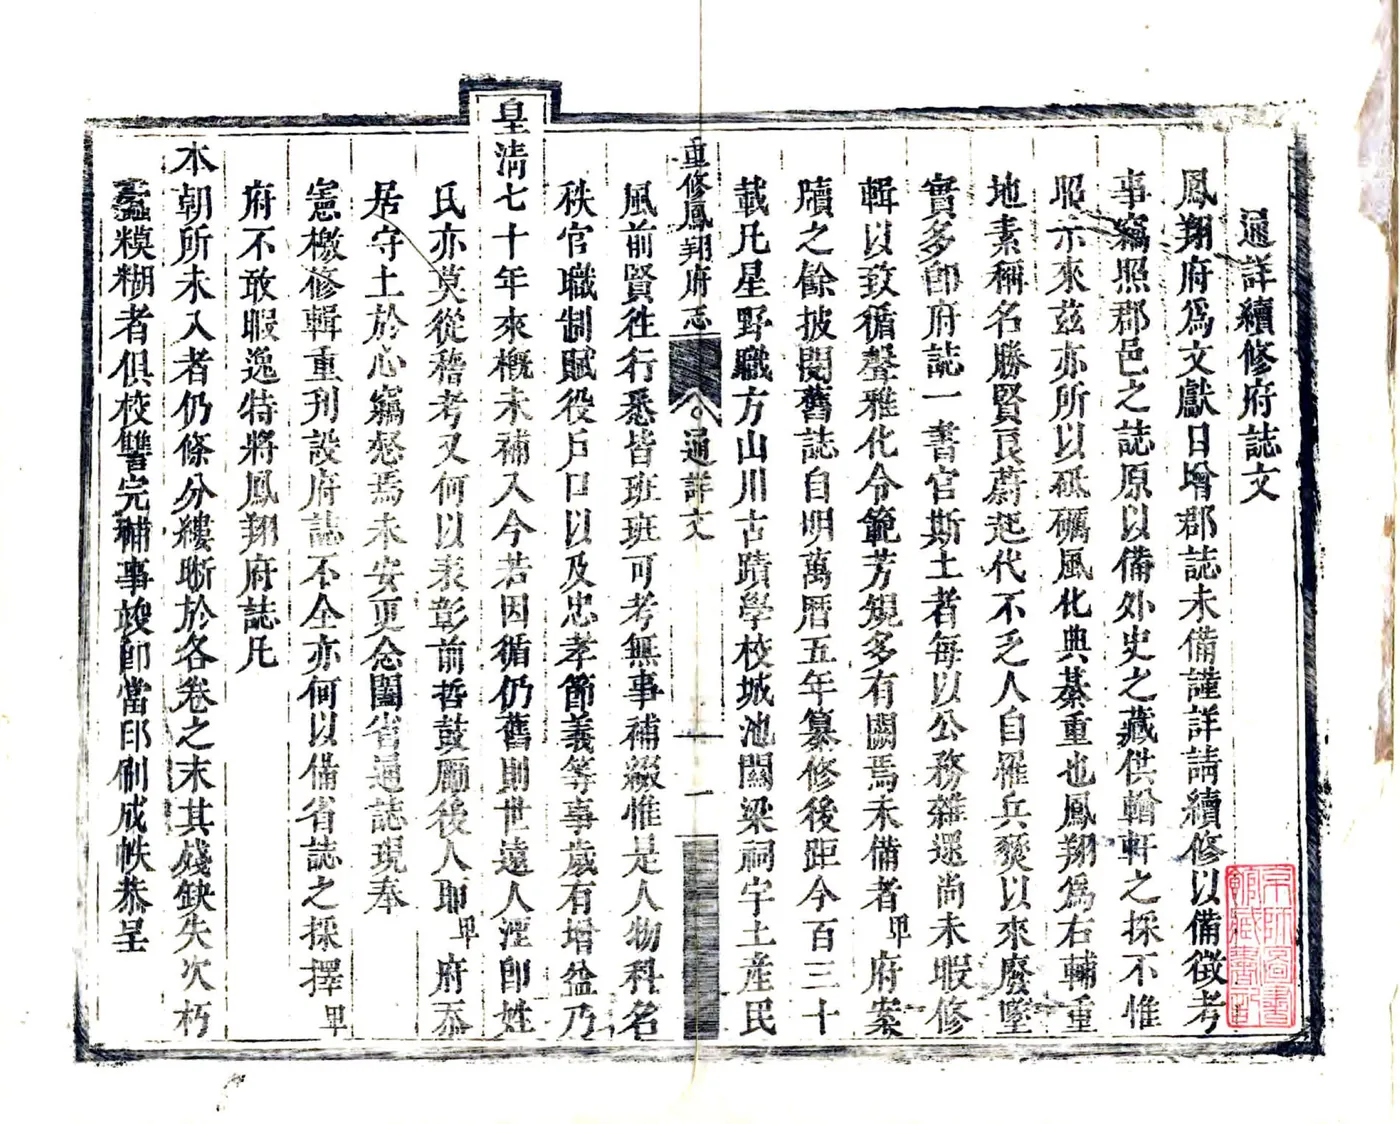 通詳續修府誌文
鳳翔府爲文獻日增郡誌未備謹詳請續修以備徵考
事竊照郡邑之誌原以備外史之藏供輶軒之採不惟
昭示來茲亦所以砥礪風化典綦重也鳳翔爲右輔重
地素稱名勝賢良蔚起代不乏人自罹兵燹以來廢墜
實多卽府誌一書官斯土者每以公務雜遝尚未暇修
輯以致循聲雅化令範芳規多有闕焉未備者卑府案
牘之餘披閱舊誌自明萬曆五年纂修後距今百三十
載凡星野職方山川古蹟學校城池關梁祠宇土產民
重修鳳翔府志 通詳文 一
風前賢徃行悉皆班班可考無事補綴惟是人物科名
秩官職制賦役戶口以及忠孝節義等事歲有增益乃
皇清七十年來槪未補入今若因循仍舊則世遠人湮卽姓
氏亦莫從稽考又何以表彰前哲鼓勵後人耶卑府忝
居守土於心竊惄焉未安更念闔省通誌現奉
憲檄修輯重刊設府誌不全亦何以備省誌之採擇卑
府不敢暇逸特將鳳翔府誌凡
本朝所未入者仍條分縷晰於各卷之末其殘缺失次朽
蠹糢糊者俱校讐完補事竣卽當印刷成帙恭呈
京師圖書館藏書記